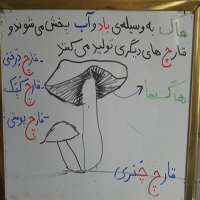 هاگ به وسیله‌ی باد و آب پخش می‌شوند و
قارچ های دیگری تولید می‌کنند
قارچ دِرَختی
قارچ کپَک
قارچ پوستی
هاگ‌ها
قارچ چَتری